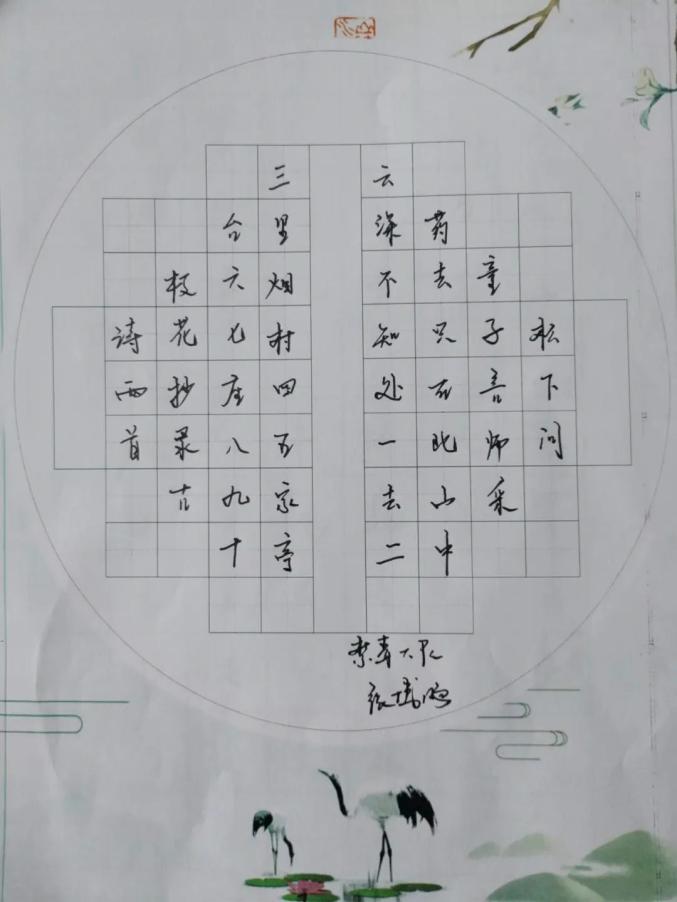 松下问
童子言师采
药去只在此山中
云深不知处一去二
三里烟村四五家亭
台六七座八九十
枝花抄录古
诗两首